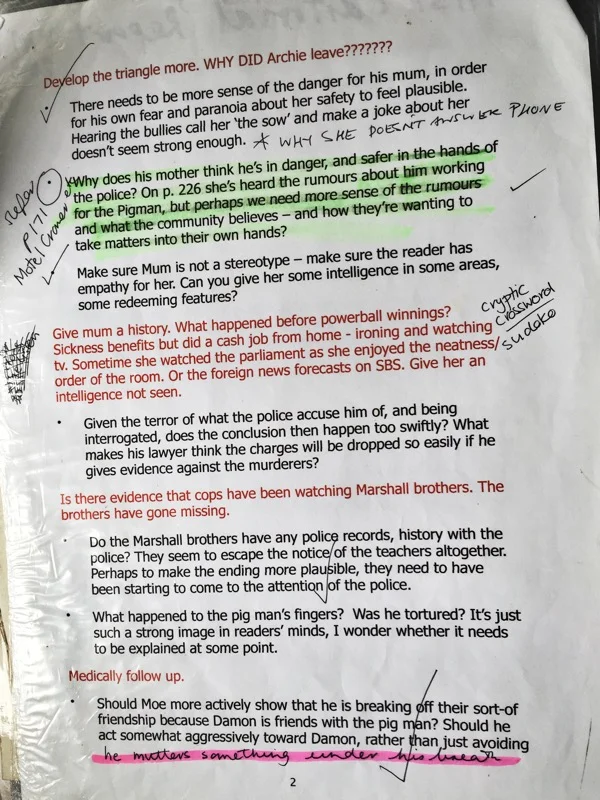 Develop the triangle more. WHY DID Archie leave???????
There needs to be more sense of the danger for his mum, in order
for his own fear and paranoia about her safety to feel plausible.
Hearing the bullies call her 'the sow' and make a joke about her
doesn't seem strong enough. * WHY SHE DOESN'T ANSWER PHONE
Why does his mother think he's in danger, and safer in the hands of
the police? On p. 226 she's heard the rumours about him working
for the Pigman, but perhaps we need more sense of the rumours
and what the community believes – and how they're wanting to
take matters into their own hands?
P171
Motel
Make sure Mum is not a stereotype – make sure the reader has
empathy for her. Can you give her some intelligence in some areas,
some redeeming features?
cryptic
crossword
/sudoko
Give mum a history. What happened before powerball winnings?
Sickness benefits but did a cash job from home - ironing and watching
tv. Sometime she watched the parliament as she enjoyed the neatness/
order of the room. Or the foreign news forecasts on SBS. Give her an
intelligence not seen.
• Given the terror of what the police accuse him of, and being
interrogated, does the conclusion then happen too swiftly? What
makes his lawyer think the charges will be dropped so easily if he
gives evidence against the murderers?
Is there evidence that cops have been watching Marshall brothers. The
brothers have gone missing.
• Do the Marshall brothers have any police records, history with the
police? They seem to escape the notice of the teachers altogether.
Perhaps to make the ending more plausible, they need to have
been starting to come to the attention of the police.
• What happened to the pig man's fingers? Was he tortured? It's just
such a strong image in readers' minds, I wonder whether it needs
to be explained at some point.
Medically follow up.
• Should Moe more actively show that he is breaking off their sort-of
friendship because Damon is friends with the pig man? Should he
act somewhat aggressively toward Damon, rather than just avoiding
he mutters something under his breath
2